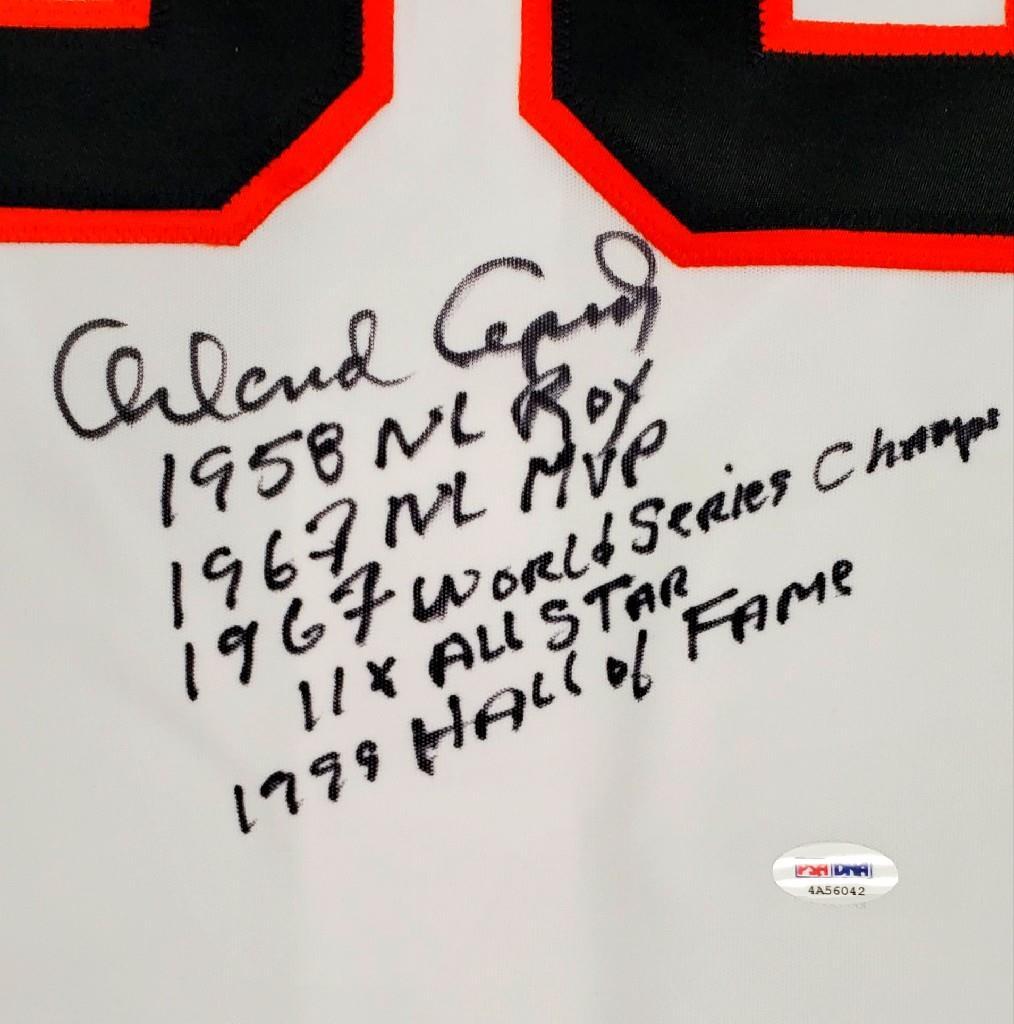 Orlando Cepeda
1958 NL ROY
1967 NL MVP
1967 WORLd SERiES CHAMPS
11x ALL STAR
1999 HALL of FAME
PSA DNA
4A56042